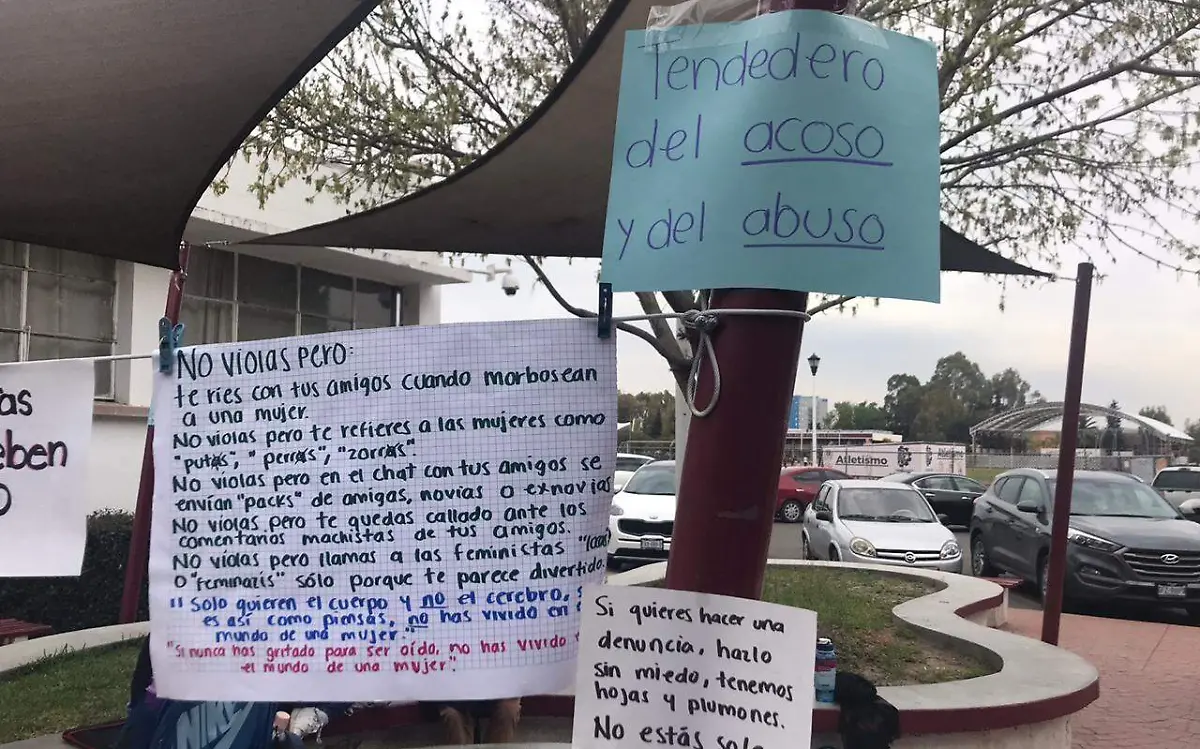 Tendedero
del acoso
y del abuso
as
eben
O
NO VIOLAS PERO:
te ries con tus amigos cuando morbosean
a una mujer.
NO violas pero te refieres a las mujeres como
"putas", "perras", "zorras".
NO violas pero en el chat con tus amigos se
envían "packs" de amigas, novias o exnovias
NO violas pero te quedas callado ante los
comentarios machistas de tus amigos.
NO violas pero llamas a las feministas "locas
O "feminazis" sólo porque te parece divertido.
"Solo quieren el cuerpo y no el cerebro, s
es así como piensas, no has vivido en
mundo de una mujer."
"Si nunca has gritado para ser oído, no has vivido
el mundo de una mujer".
Si quieres hacer una
denuncia, hazlo
sin miedo, tenemos
hojas y plumones.
No estás sola
Atletismo
NIKE